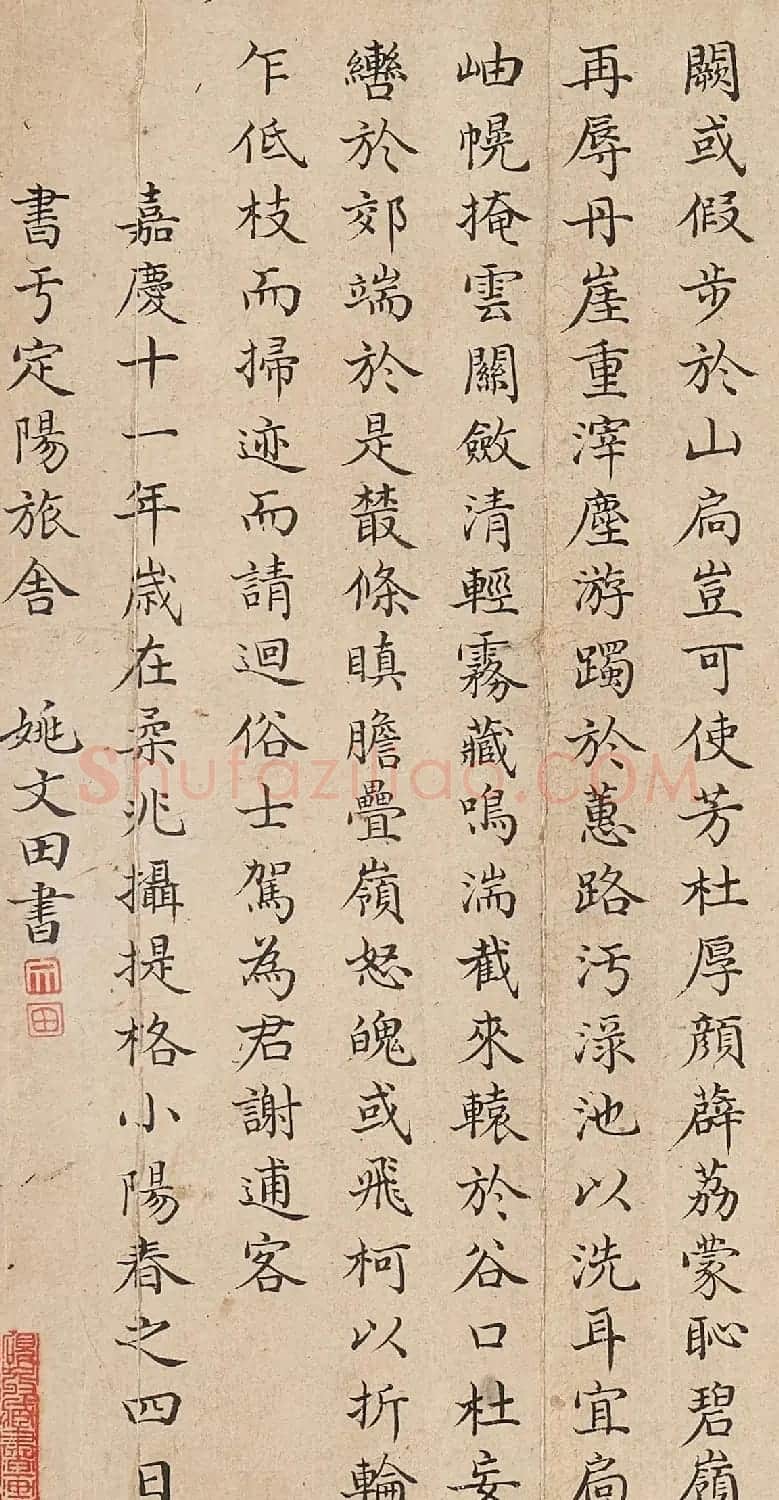 闕或假步於山扃豈可使芳杜厚顏薜荔蒙恥碧嶺
再辱丹崖重滓塵游躅於蕙路汚渌池以洗耳宜扃
岫幌掩雲關斂清輕霧藏鳴湍截來轅於谷口杜妄
轡於郊端於是叢條瞋膽疊嶺怒魄或飛柯以折輪
乍低枝而掃迹而請迴俗士駕為君謝逋客
嘉慶十一年歲在柔兆攝提格小陽春之四日
書于定陽旅舍 姚文田書
文
田
Shufaziliao.COM